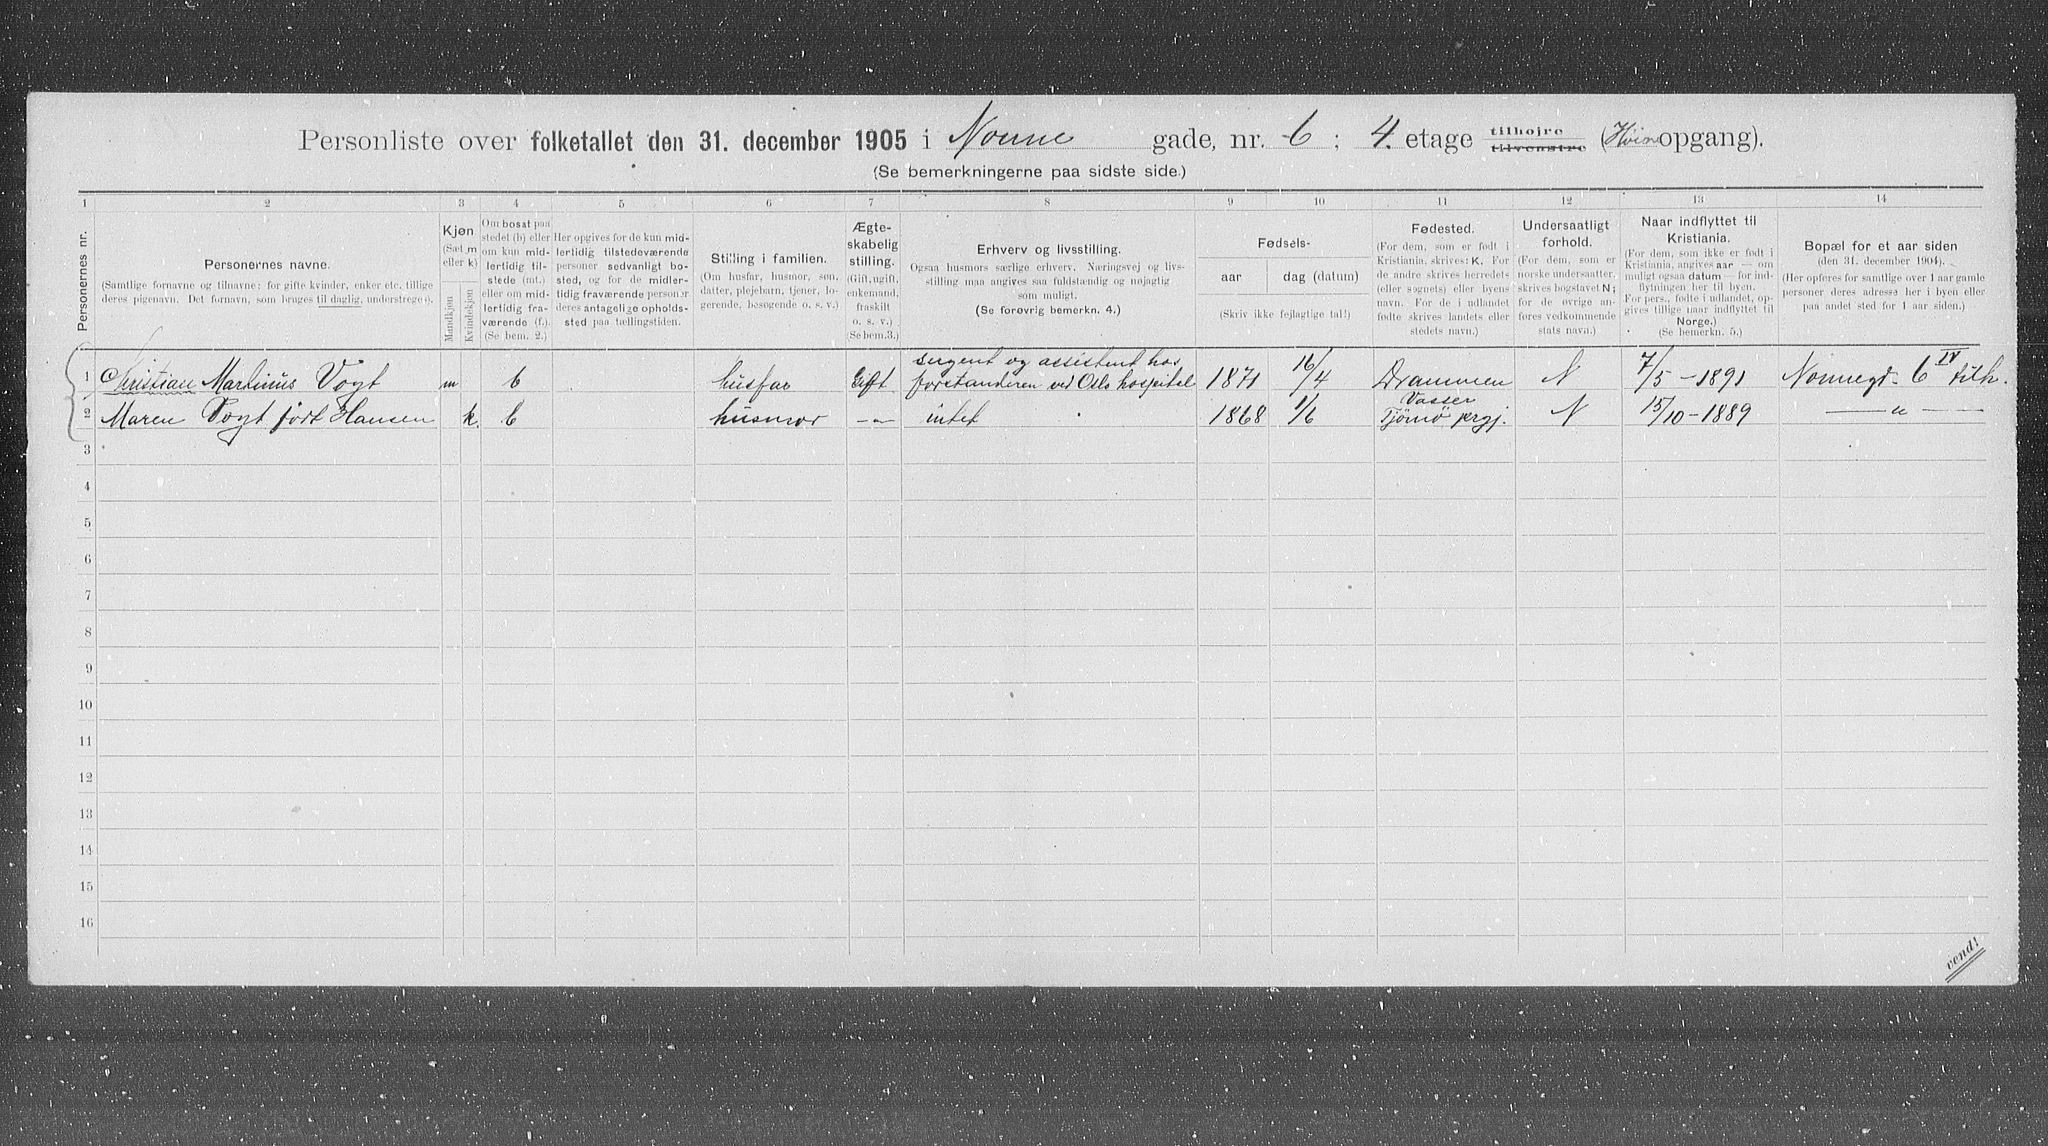 Personliste over folketallet den 31. december 1905 i Nonne gade, nr. 6 ; 4. etage tilhøjre tilvenstre opgang).
(Se bemerkningerne paa sidste side.)
1 2 3 4 5 6 7 8 9 10 11 12 13 14
Personernes nr.
Personernes navne.
(Samtlige fornavne og tilnavne; for gifte kvinder, enker etc. tillige deres pigenavn. Det fornavn, som bruges til daglig, understreges).
Kjøn
(Sæt m eller k)
Mandkjøn
Kvindekjøn
Om bosat paa stedet (b) eller om kun midlertidig tilstede (mt.) eller om midlertidig fraværende (f.) (Se bem. 2.)
Her opgives for de kun midlertidig tilstedeværende personer sedvanligt bosted, og for de midlertidig fraværende personer deres antagelige opholdssted paa tællingstiden.
Stilling i familien.
(Om husfar, husmor, søn, datter, plejebarn, tjener, logerende, besøgende o. s. v.)
Ægteskabelig stilling.
(Gift, ugift, enkemand, fraskilt o. s. v.)
(Se bem.3.)
Erhverv og livsstilling.
Ogsaa husmors særlige erhverv. Næringsvej og livsstilling maa angives saa fuldstændig og nøjagtig som muligt.
(Se forøvrig bemerkn. 4.)
Fødsels-
aar
dag (datum)
(Skriv ikke fejlagtige tal!)
Fødested.
(For dem, som er født i Kristiania, skrives: K. For de andre skrives herredets (eller sognets) eller byens navn. For de i udlandet fødte skrives landets eller stedets navn.)
Undersaatligt forhold.
(For dem, som er norske undersaatter, skrives bogstavet N; for de øvrige anføres vedkommende stats navn.)
Naar indflyttet til Kristiania.
(For dem, som ikke er født i Kristiania, angives aar — om muligt ogsaa datum — for indflytningen her til byen. For pers., fødte i udlandet, opgives tillige naar indflyttet til Norge.)
(Se bemerkn. 5.)
Bopæl for et aar siden
(den 31. december 1904).
(Her opføres for samtlige over 1 aar gamle personer deres adresse her i byen eller paa andet sted for 1 aar siden.)
1 Christian Martinus Vogt m b husfar Gift sergent og assistent hos forstanderen ved Oslo hospital 1871 16/4 Drammen N 7/5 - 1891 Nonnegd. 6 IV tilh.
2 Maren Vogt født Hansen k. b husmor —„— intet 1868 1/6 Vasser Tjømø prgj. N 15/10 - 1889 — „ —
3
4
5
6
7
8
9
10
11
12
13
14
15
16
vend!